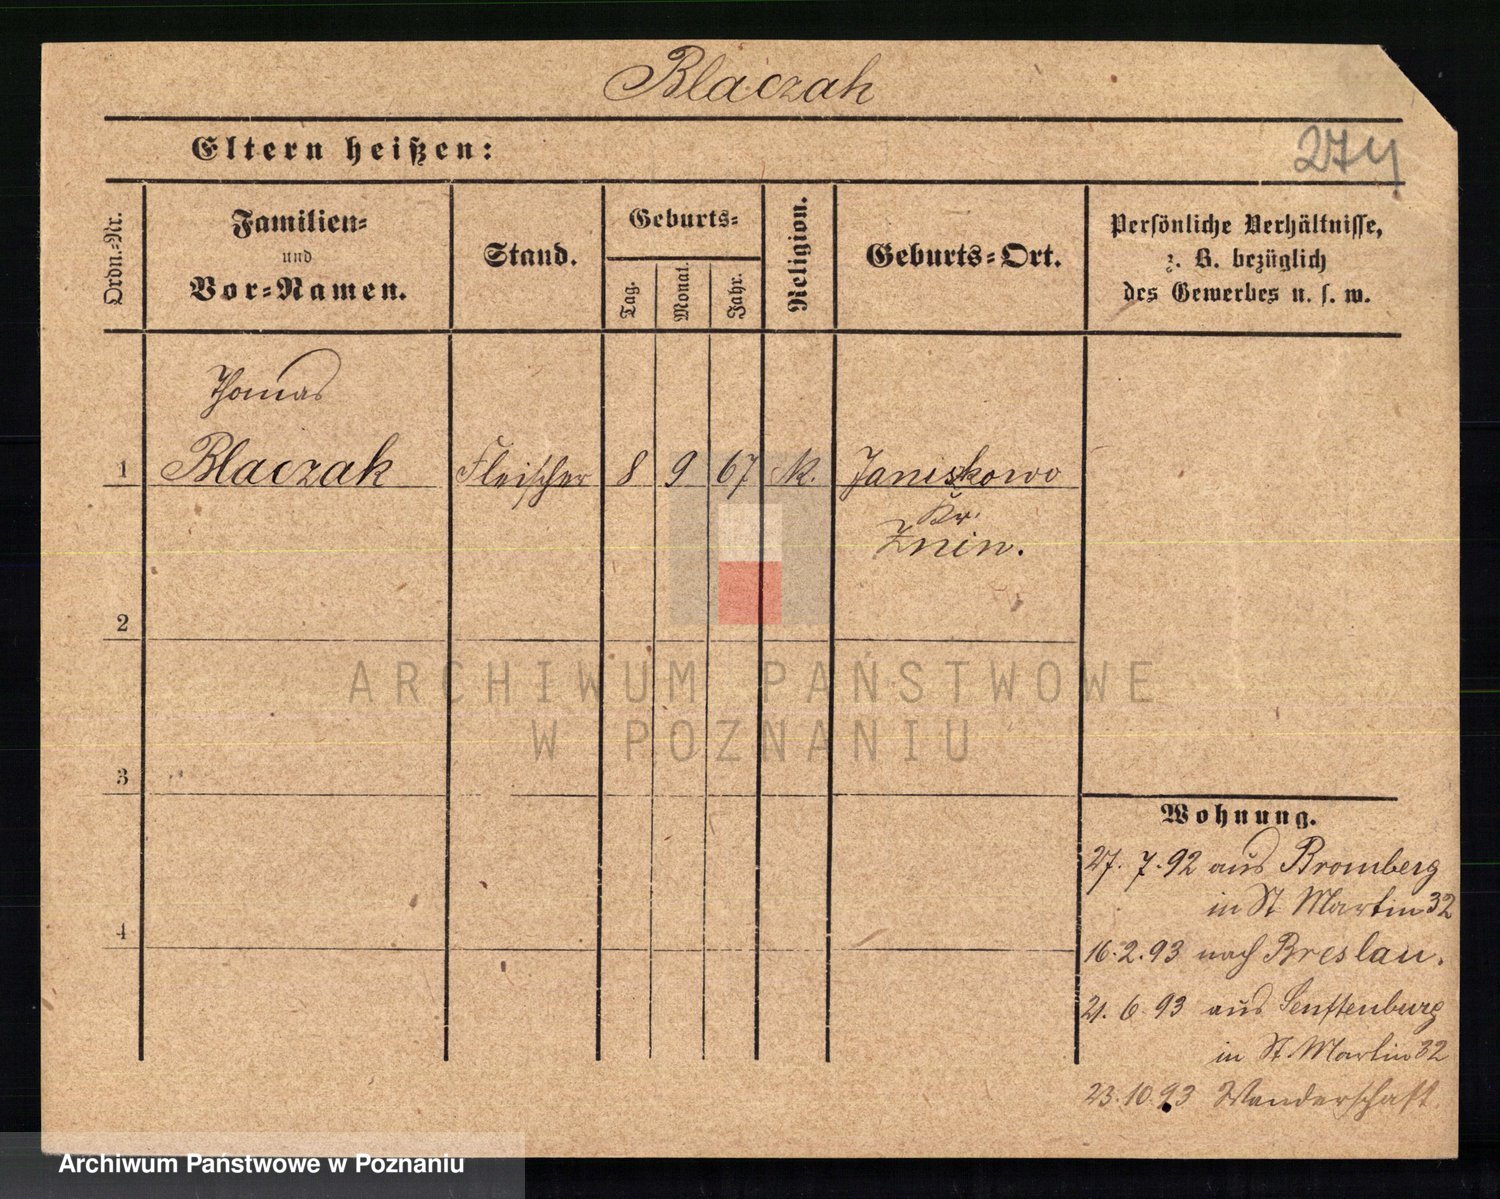 Blaczak
Eltern heißen:
274
Ordn.-Nr.
Familien-
und
Vor-Namen.
Stand.
Geburts-
Tag.
Monat.
Jahr.
Religion.
Geburts-Ort.
Persönliche Verhältnisse,
z. B. bezüglich
des Gewerbes u. s. w.
Thomas
1 Blaczak Fleischer 8 9 67 K. Janiskowo
Kr.
Znin.
2
ARCHIWUM PAŃSTWOWE
W POZNANIU
3
Wohnung.
27. 7. 92 aus Bromberg
in St Martin 32
4
16. 2. 93 nach Breslau.
21. 6. 93 aus Senftenburg
in St. Martin 32
23. 10. 93 Wanderschaft
Archiwum Państwowe w Poznaniu